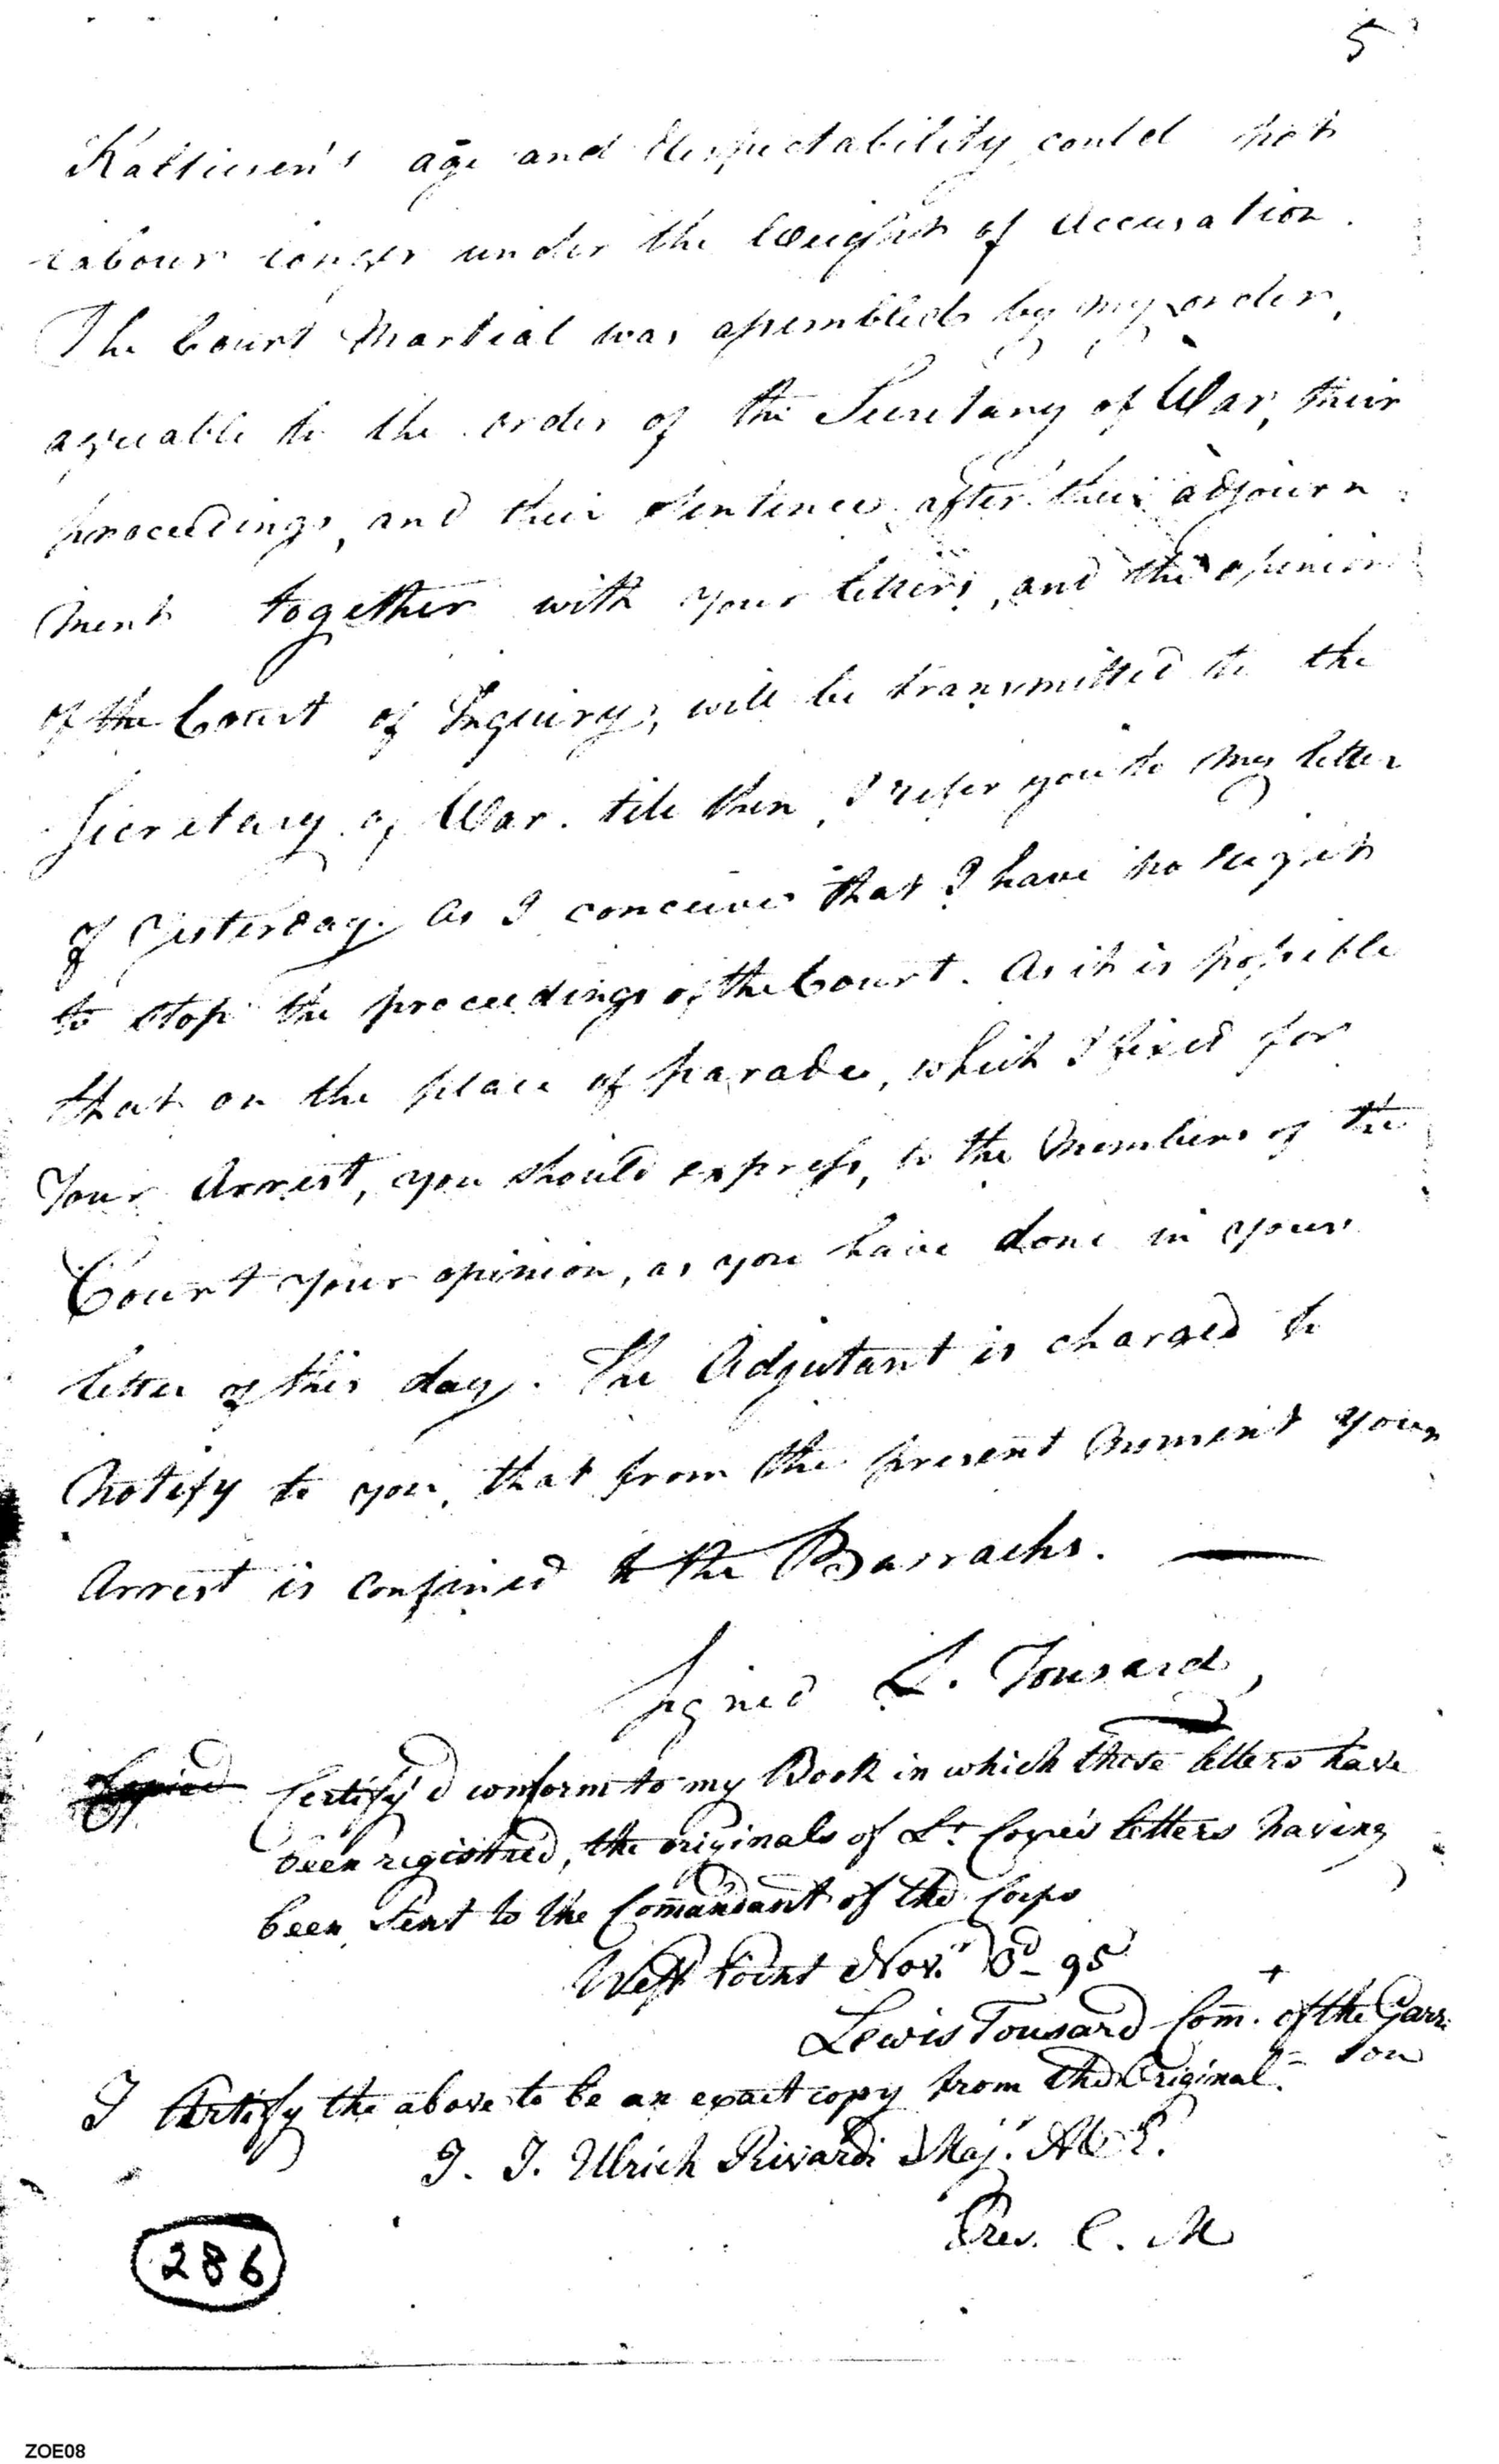 5
Katticsen's age and Respectability could not
labour longer under the Weight of Accusation.
The Court Martial was assembled by my order,
agreable to the order of the Secretary of War, their
proceedings, and their Sentence after their adjourn
ment together with your letters, and the opinion
of the Court of Inquiry, will be transmitted to the
Secretary of War. till then, I refer you to my letter
of Yesterday. As I conceive that I have no Right
to stop the proceedings of the Court. As it is possible
that on the place of parade, which I fixed for
Your Arrest, you should express, to the Members of the
Court your opinion, as you have done in your
letter of this day. The Adjutant is charged to
Notify to you, that from the present Moment your
Arrest is confined to the Barracks. —
Signed L. Tousard,
Certify'd conform to my Book in which these letters have
been registred, the originals of Lt. Coxe's letters having
been Sent to the Com̄andant of the Corps
West Point Novr. 3d 95
Lewis Tousard Com̄. of the Garri
son
I Certify the above to be an exact copy from the Original.
J. J. Ulrich Rivardi Maj. A & E.
Pres. C. M
286
ZOE08